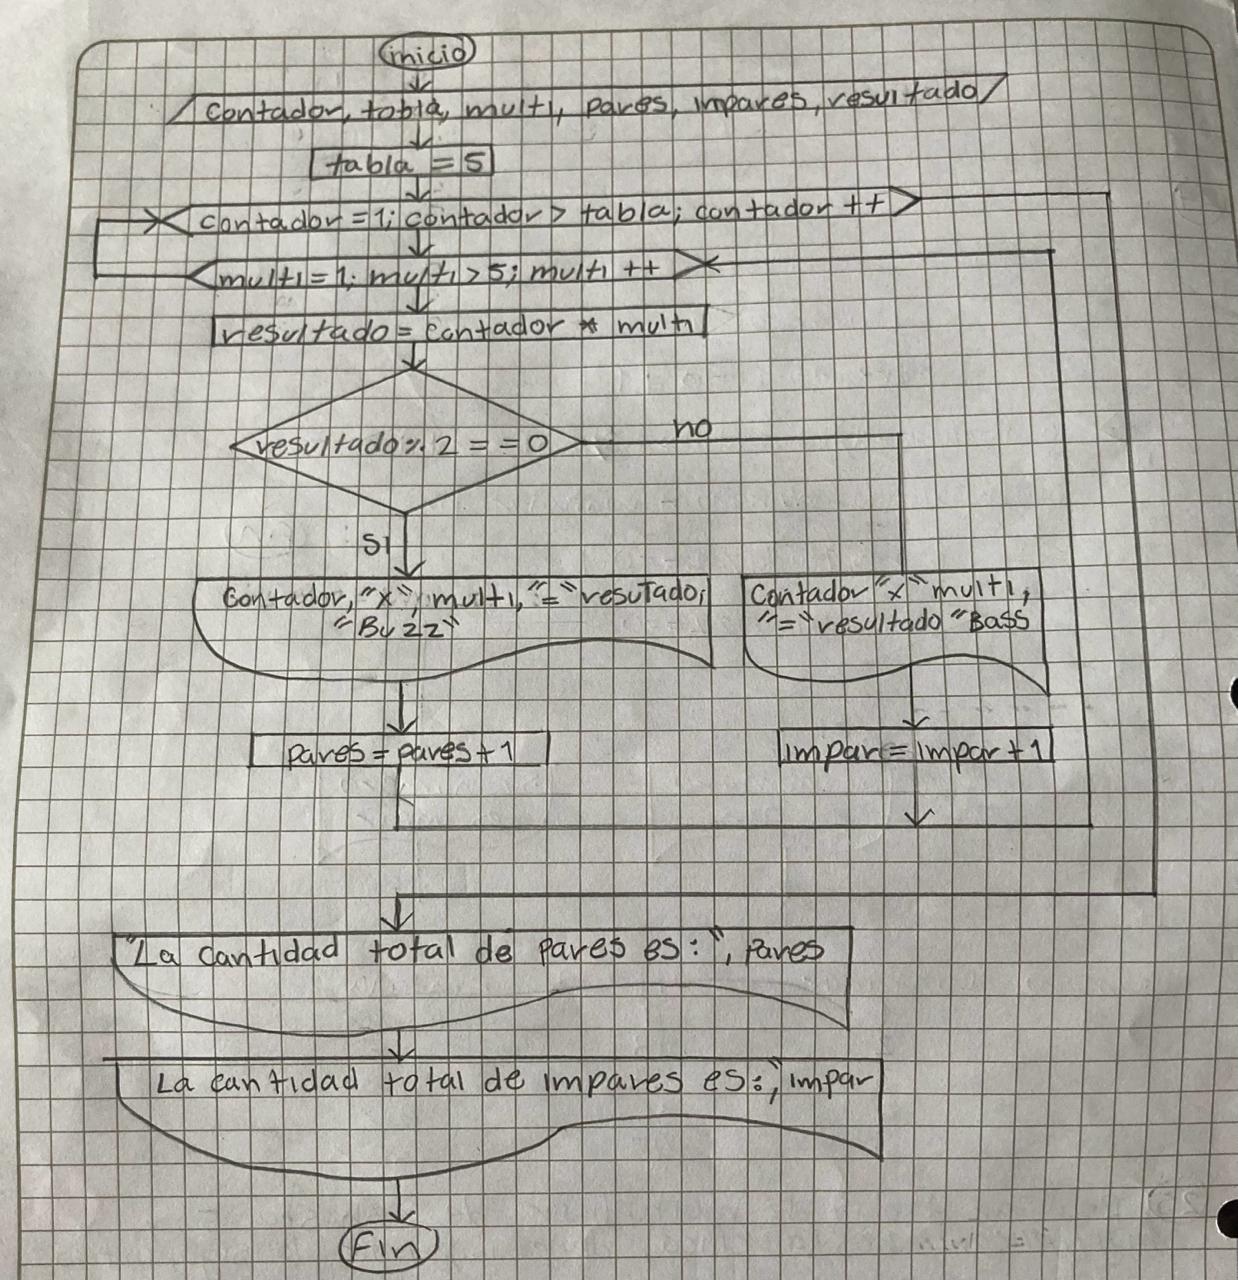 inicio
contador, tobla, multi, pares, impares, resultado
tabla = 5
contador = 1; contador > tabla; contador ++
multi = 1; multi > 5; multi ++
resultado = contador * multi
resultado % 2 = = 0
no
si
contador, "x", multi, "=" resultado,
"Buzz"
contador "x" multi,
"=" resultado "Bass
pares = pares + 1
impar = impar + 1
"La cantidad total de pares es: ", pares
La cantidad total de impares es: ", impar
Fin